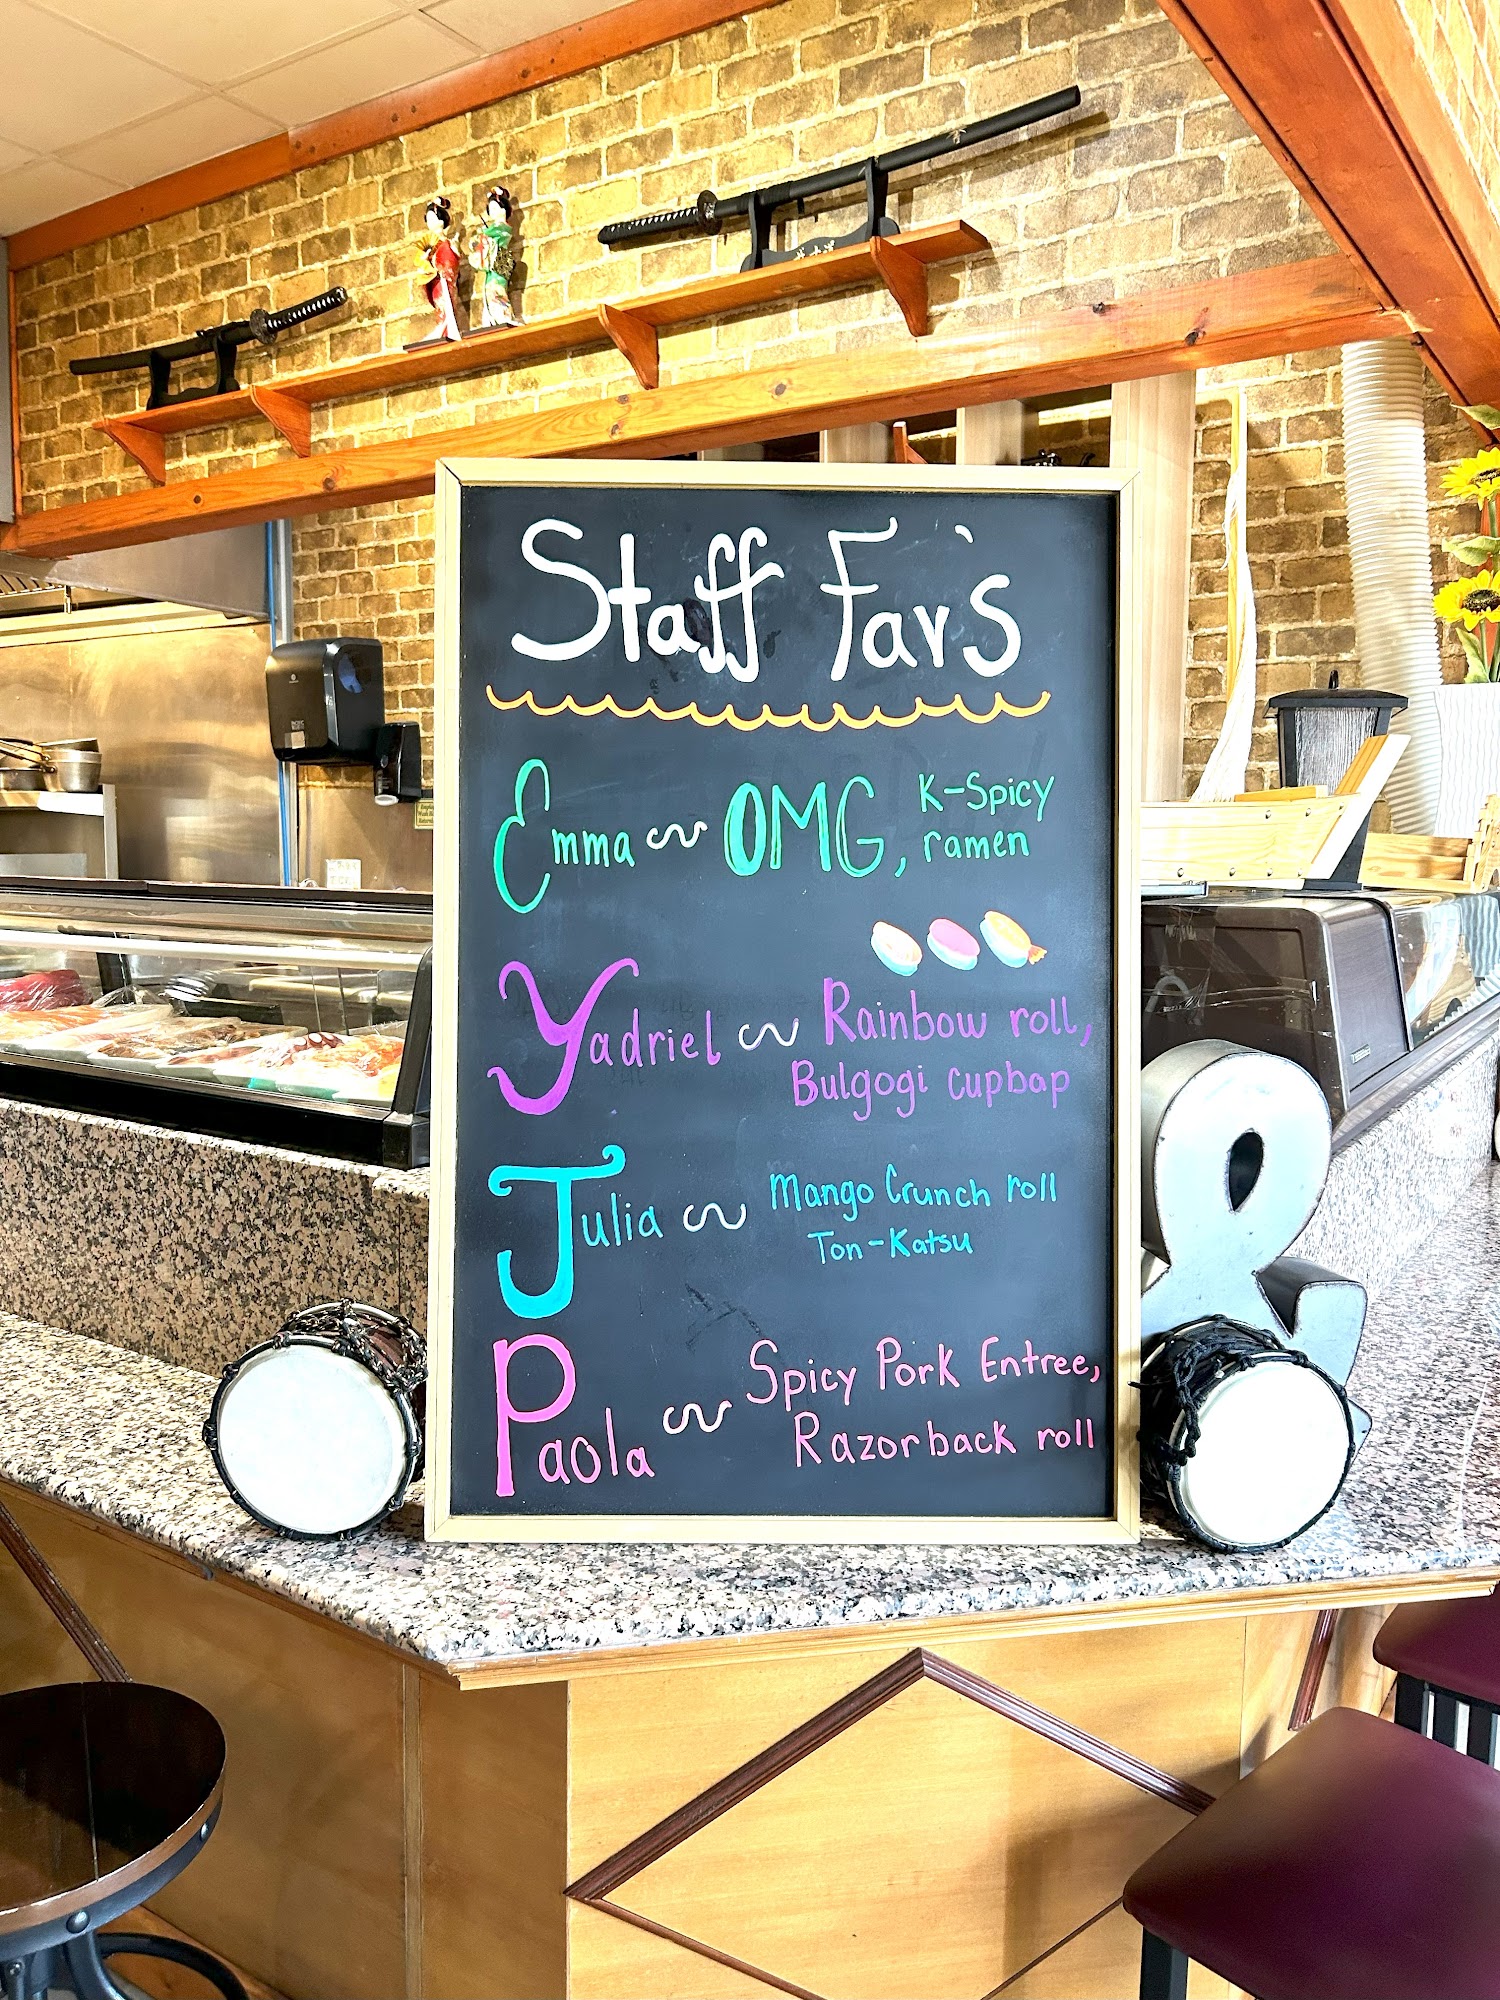 Staff Fav's
Emma ~ OMG, K-Spicy
ramen
Yadriel ~ Rainbow roll,
Bulgogi cupbap
Julia ~ Mango Crunch roll
Ton-Katsu
Paola ~ Spicy Pork Entree,
Razorback roll